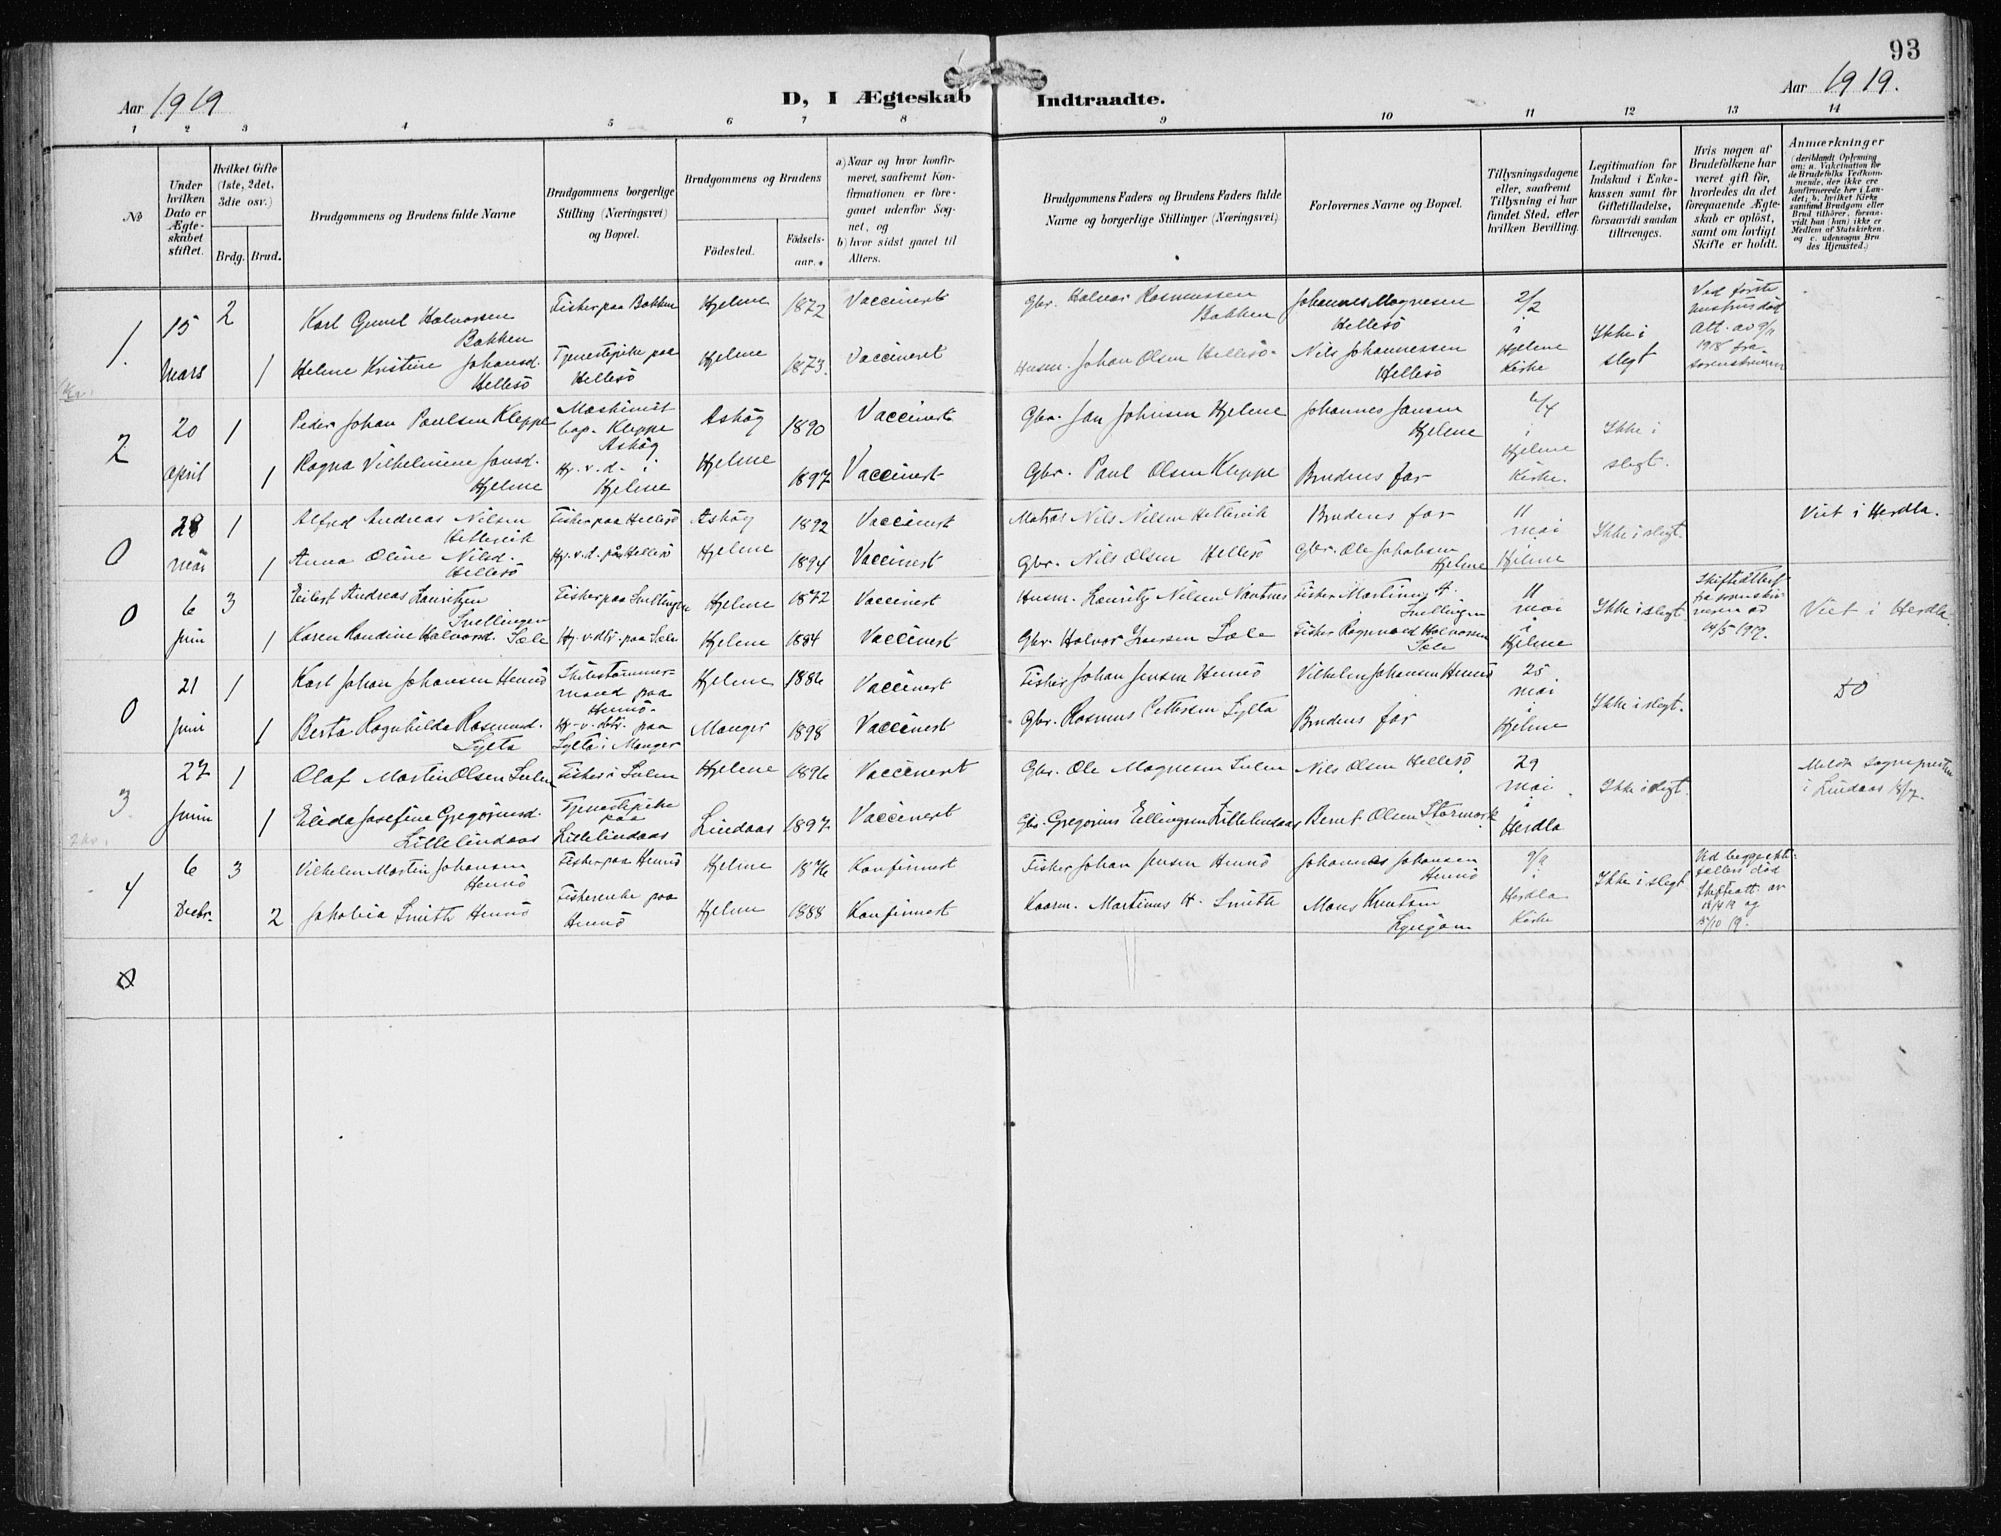 93
Aar 1919
D, I Ægteskab Indtraadte.
Aar 1919.
1 2 3 4 5 6 7 8 9 10 11 12 13 14
№
Under hvilken Dato er Ægteskabet stiftet.
Hvilket Gifte (1ste, 2det, 3die osv.)
Brdg. Brud.
Brudgommens og Brudens fulde Navne
Brudgommens borgerlige Stilling (Næringsvei) og Bopæl.
Brudgommens og Brudens
Fødested.
Fødselsaar.
a) Naar og hvor konfirmeret, saafremt Konfirmationen er foregaaet udenfor Sognet, og
b) hvor sidst gaaet til Alters.
Brudgommens Faders og Brudens Faders fulde Navne og borgerlige Stillinger (Næringsvei)
Forlovernes Navne og Bopæl.
Tillysningsdagene eller, saafremt Tillysning ei har fundet Sted, efter hvilken Bevilling.
Legitimation for Indskud i Enkekassen samt for Giftetilladelse, forsaavidt saadan tiltrænges.
Hvis nogen af Brudefolkene har været gift før, hvorledes da det foregaaende Ægteskab er opløst, samt om lovligt Skifte er holdt.
Anmærkninger
(deriblandt Oplysning om: a. Vakcination for de Brudefolks Vedkommende, der ikke ere konfirmerede her i Landet; b. hvilket Kirkesamfund Brudgom eller Brud tilhører, forsaavidt han (hun) ikke er Medlem af Statskirken, og c. udensogns Brudes Hjemsted.)
1. 15 Mars 2 Karl Gunel Halvorsen Bakken Fisker paa Bakken Hjelme 1872 Vaccinert Gbr. Halvor Rasmussen Bakken Johannes Magnesen Hellesö 2/2 i Hjelme Kirke Ikke i slegt Ved første hustrus död Att. av 9/11 1918 fra sorenskriveren
1 Helene Kristine Johansd. Hellesö Tjenestepike paa Hellesö Hjelme 1873. Vaccineret Husm. Johan Olsen Hellesö. Nils Johannessen Hellesö
2 20 April 1 Peder Johan Paulsen Kleppe Maskinist bop. Kleppe Askög 1890 Vaccinert Gbr. Jan Johnsen Hjelme Johannes Jansen Hjelme 6/4 i Hjelme Kirke. Ikke i slegt.
1 Ragna Vilhelmine Jansd. Hjelme Hj. v. d. i Hjelme Hjelme 1897 Vaccinert Gbr. Paul Olsen Kleppe Brudens far
0 28 mai 1 Alfred Andreas Nilsen Hellevik Fisker paa Hellesö Askög 1892 Vaccinert Matros Nils Nilsen Hellevik Brudens far 11 mai i Hjelme Ikke i slegt. Viet i Herdla.
1 Anna Oline Nilsd. Hellesö Hj. v. d. paa Hellesö Hjelme 1894 Vaccinert Gbr. Nils Olsen Hellesö Gbr. Ole Jakobsen Hjelme
0 6 Juni 3 Eilert Andreas Lauritzen Snellingen Fisker paa Snellingen Hjelme 1872 Vaccinert Husm. Lauritz Nilsen Fisker Martinus A. Snellingen 11 mai i Hjelme Ikke i slegt 14/5 1917. Viet i Herdla.
1 Karen Randine Halvorsd. Sæle Hj. v. dtr. paa Sæle Hjelme 1884 Vaccinert Gbr. Halvor Iversen Sæle Fisker Ragnvald Halvorsen Sæle
0 21 Juni 1 Karl Johan Johansen Hennö Skibstömmermand paa Hennö. Hjelme 1886 Vaccinert Fisker Johan Jensen Hennö Vilhelm Johansen Hennö 25. mai i Hjelme Ikke i slegt. DO
1 Berta Ragnhilda Rasmusd. Sylta Hj. v. dtr. paa Sylta i Manger Manger 1898 Vaccinert Gbr. Rasmus Pettersen Sylta Brudens far
3 27 Juni 1 Olaf Martin Olsen Sulen Fisker i Sulen Hjelme 1896 Vaccinert Gbr. Ole Magnesen Sulen Nils Olsen Hellesö 29 mai i Herdla Ikke i slegt. Meldt sognepresten i Lindaas 18/7.
1 Elida Josefine Gregoriusd. Lillelindaas Tjenestepike paa Lillelindaas Lindaas 1897 Vaccinert Gbr. Gregorius Ellingsen Lillelindaas Bernt Olsen Stormark
4 6 Decbr. 3 Vilhelm Martin Johansen Hennö Fisker paa Hennö Hjelme 1876 Konfirmert Fisker Johan Jensen Hennö Johannes Johansen Hennö 9/9 i Herdla Kirke Ikke i slegt Ved begge ektefællers död Skifteatt. av 19 og 15/10 19.
2 Jakobia Smith Hennö Fiskerenke paa Hennö Hjelme 1888 Konfirmert Kaarm. Martinus H. Smith Mons Knutsen
0